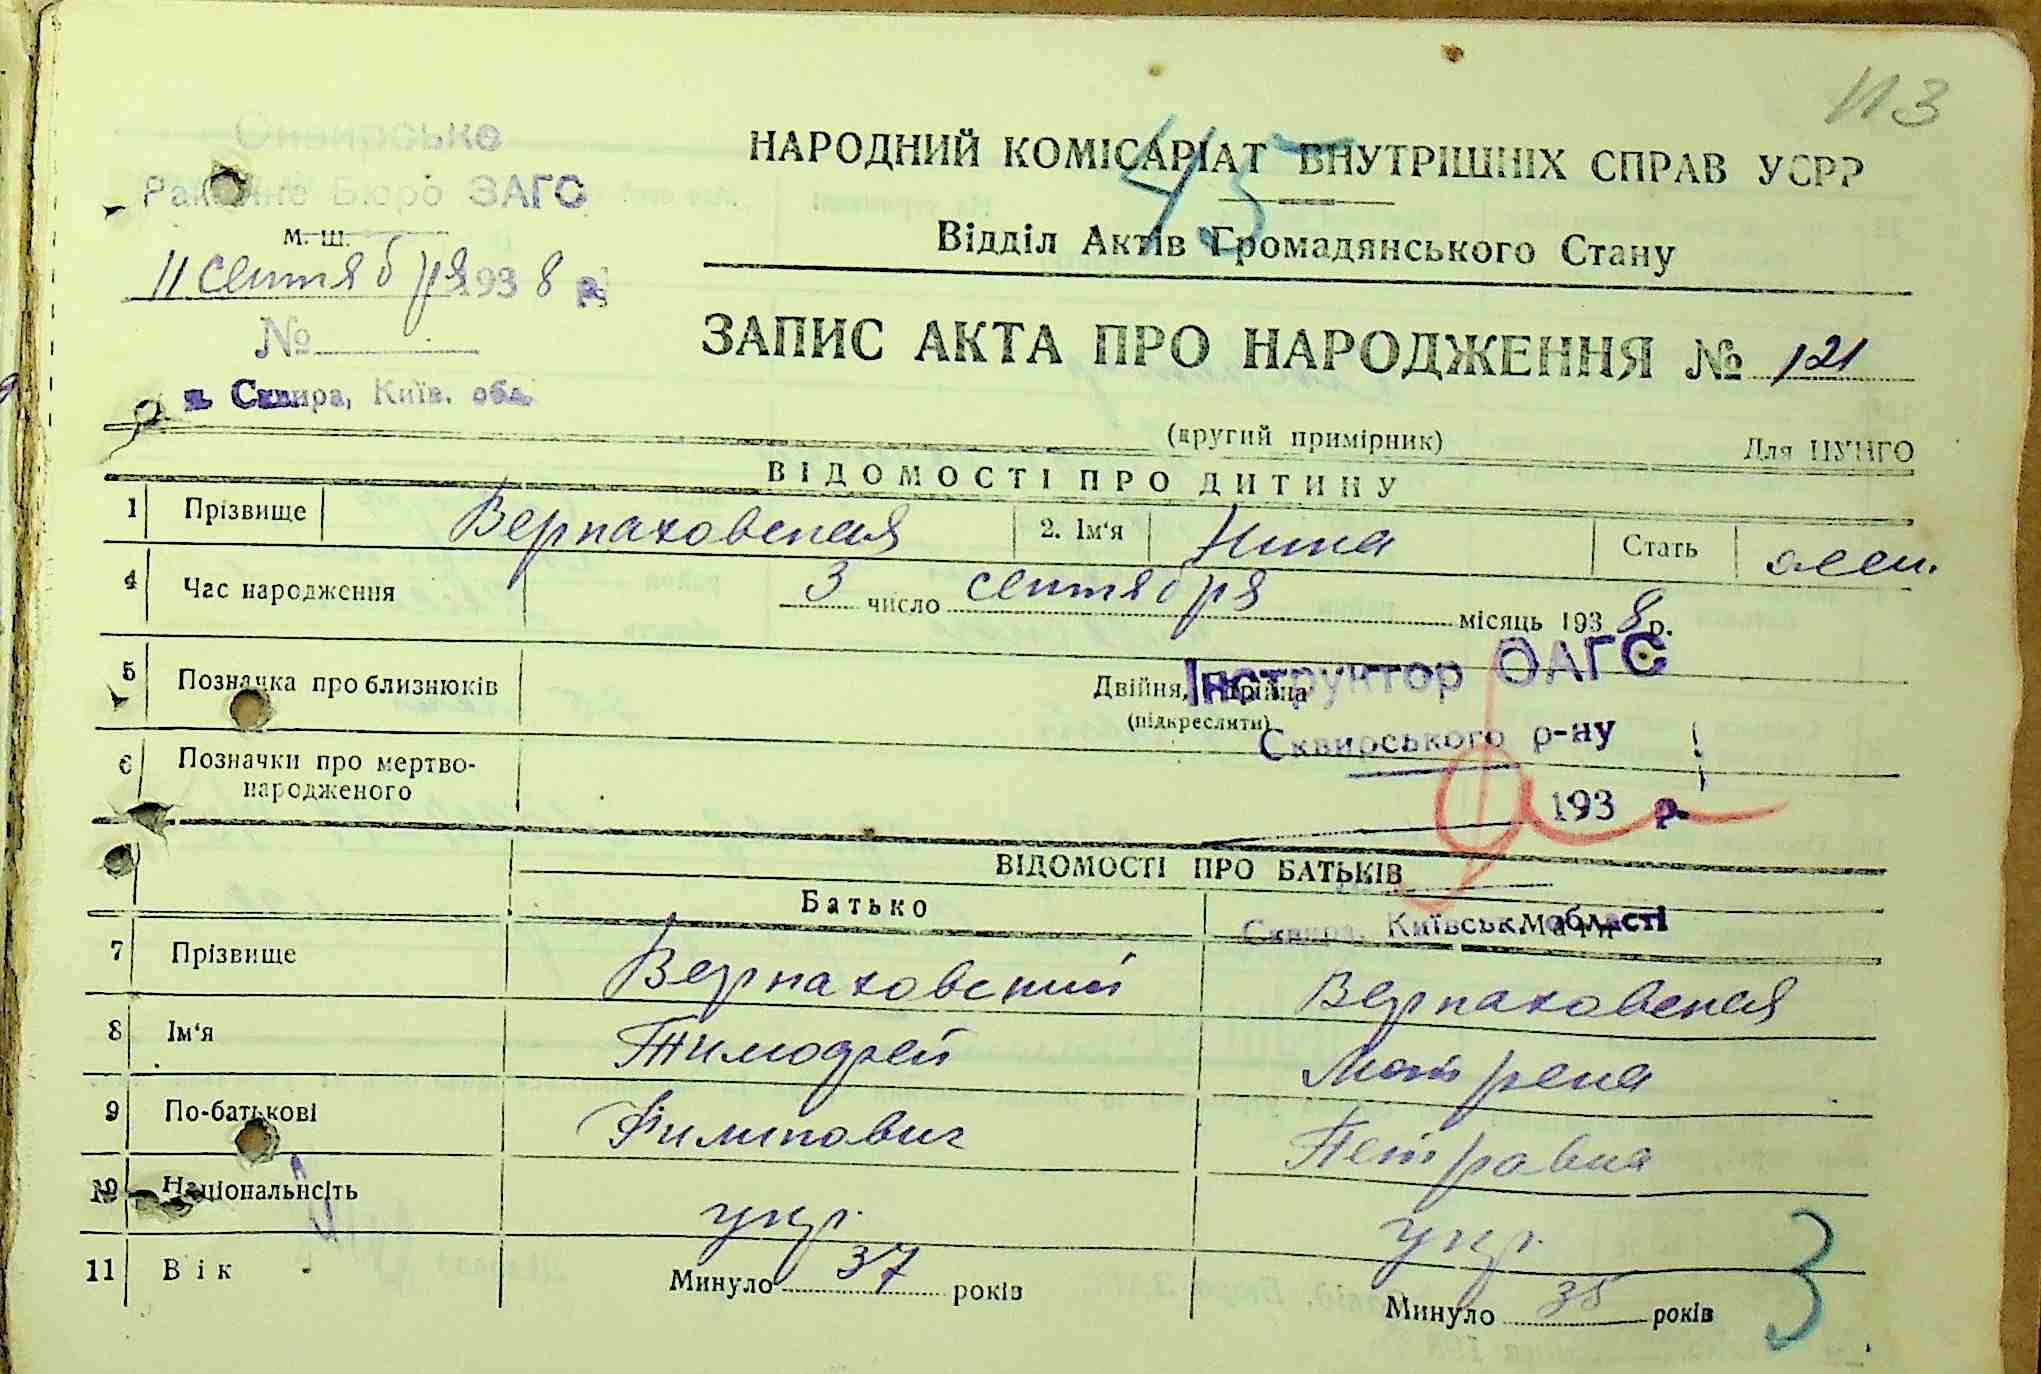 113
Сквирське
Районне Бюро ЗАГС
м. ш.
11 сентября 1938 р.
№
м. Сквира, Київ. обл.
НАРОДНИЙ КОМІСАРІАТ ВНУТРІШНІХ СПРАВ УСРР
45
Відділ Актів Громадянського Стану
ЗАПИС АКТА ПРО НАРОДЖЕННЯ № 121
(другий примірник) Для ЦУНГО
ВІДОМОСТІ ПРО ДИТИНУ
1 Прізвище Верпаховская 2. Ім'я Нина Стать
4 Час народження 3 число сентября місяць 1938 р.
5 Позначка про близнюків Двійня, трійня
(підкреслити)
Інструктор ОАГС
Сквирського р-ну
6 Позначки про мертвонародженого
193 р.
ВІДОМОСТІ ПРО БАТЬКІВ
Батько Мати
Сквира, Київськ області
7 Прізвище Верпаховский Верпаховская
8 Ім'я Тимофей Матрена
9 По-батькові Филипович Петровна
10 Національність укр. укр.
11 Вік Минуло 37 років Минуло 35 років
3